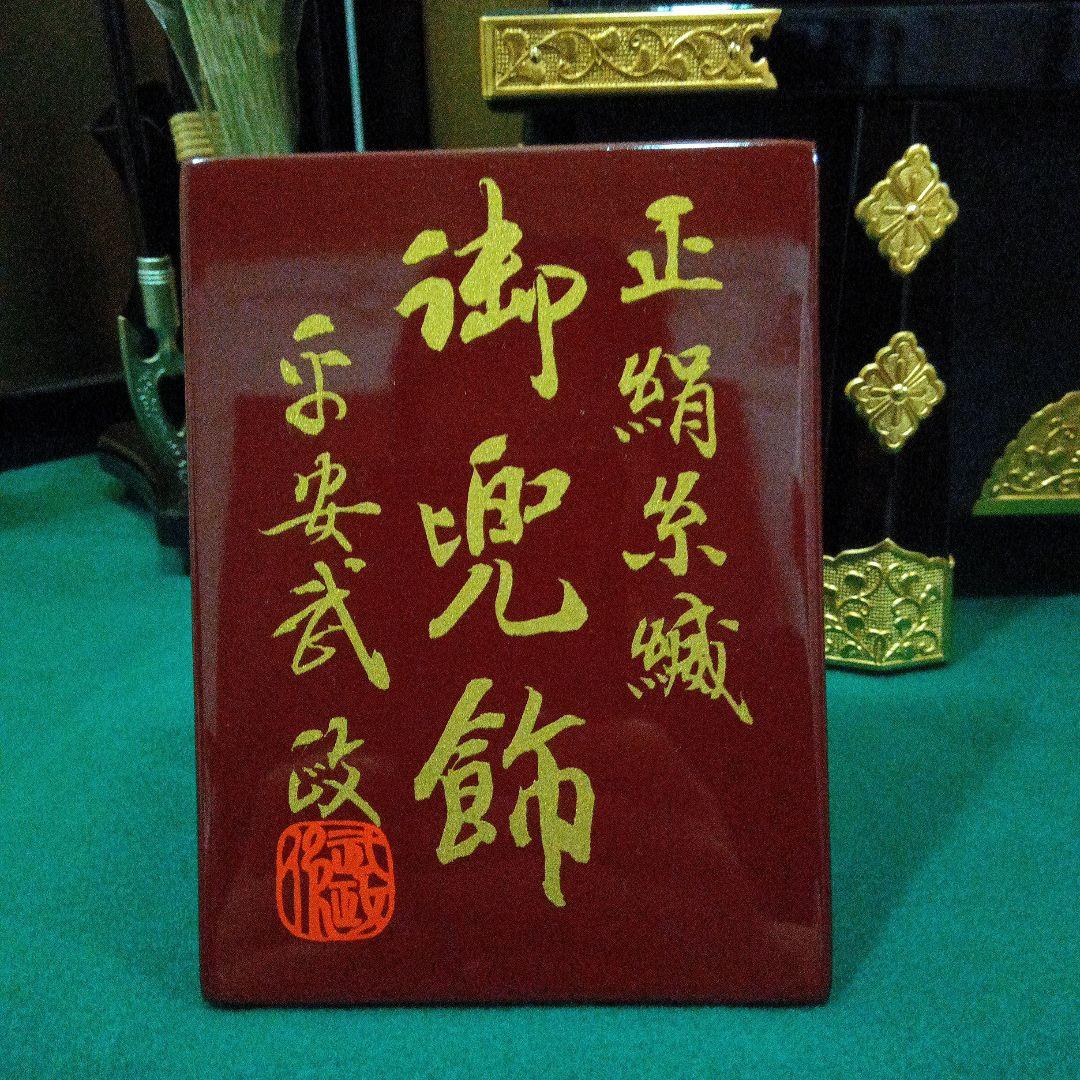 正絹糸縅
御兜飾
平安武政